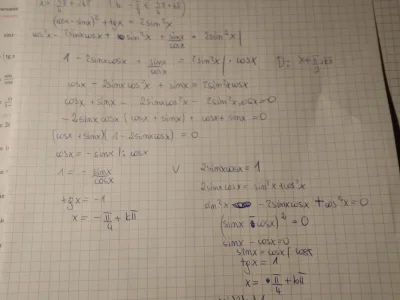 (cosx - sinx)² + tgx = 2sin²x
cos²x - 2sinxcosx + sin²x + sinx/cosx = 2sin²x |
1 - 2sinxcosx + sinx/cosx = 2sin²x | · cosx
D: x ≠ π/2 + kπ
cosx - 2sinxcos²x + sinx = 2sin²xcosx
cosx + sinx - 2sinxcos²x - 2sin²x cosx = 0
-2sinxcosx (cosx + sinx) + cosx + sinx = 0
(cosx + sinx)(1 - 2sinxcosx) = 0
cosx = -sinx |: cosx v 2sinxcosx = 1
1 = - sinx/cosx
2sinxcosx = sin²x + cos²x
sin²x - 2sinxcosx + cos²x = 0
tgx = -1
(sinx - cosx)² = 0
x = - π/4 + kπ
sinx - cosx = 0
sinx = cosx / cosx
tgx = 1
x = π/4 + kπ